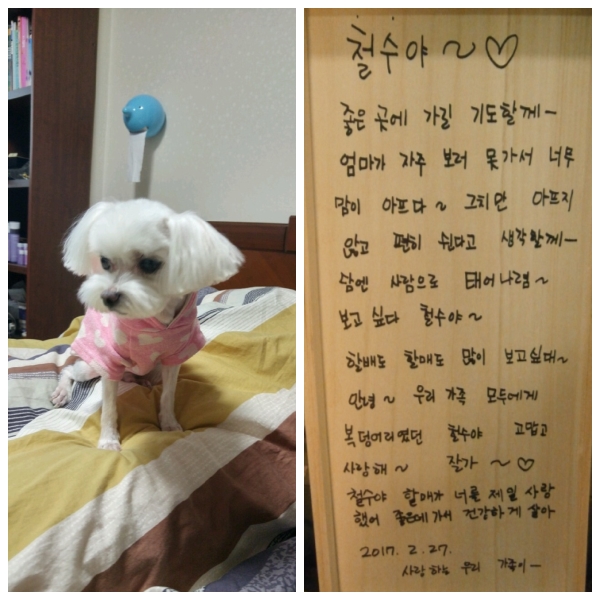 철수야~♡
좋은 곳에 가길 기도할께ㅡ
엄마가 자주 보러 못가서 너무
맘이 아프다~ 그치만 아프지
않고 편히 쉰다고 생각할께ㅡ
담엔 사람으로 태어나렴~
보고싶다 철수야~
할배도 할매도 많이 보고싶대~
안녕~ 우리 가족 모두에게
복덩어리였던 철수야 고맙고
사랑해~ 잘가~♡
철수야 할매가 너를 제일 사랑
했어 좋은데가서 건강하게 살아
2017. 2. 27.
사랑하는 우리 가족이ㅡ